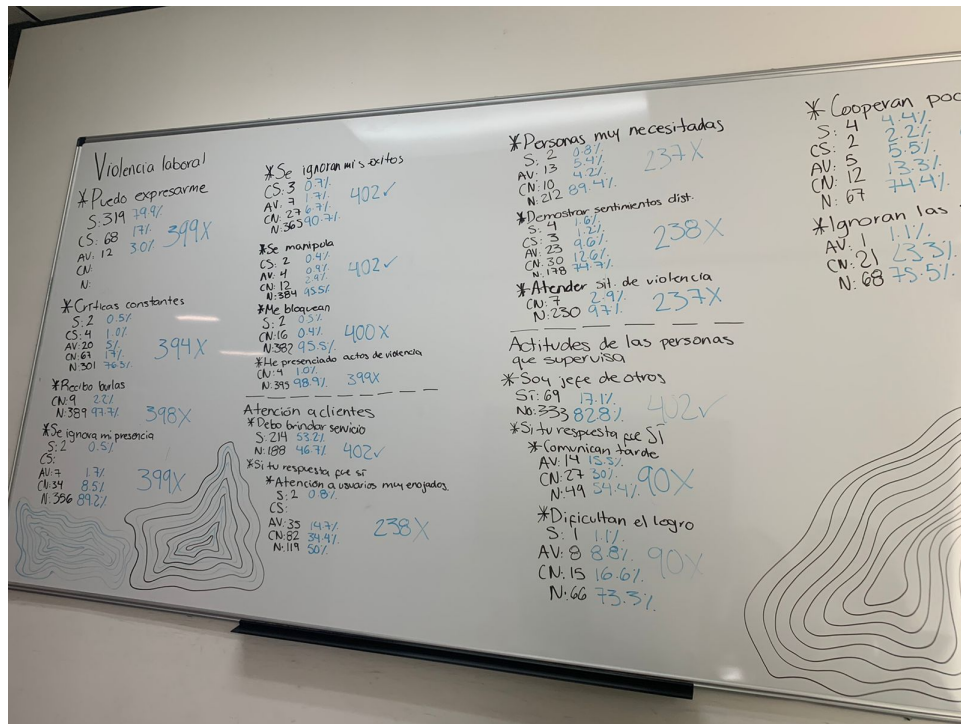 Violencia laboral
*Puedo expresarme
S: 319 79.9%
CS: 68 17%
AV: 12 3.0%
CN:
N:
399X
*Críticas constantes
S: 2 0.5%
CS: 4 1.0%
AV: 20 5%
CN: 67 17%
N: 301 76.3%
394X
*Recibo burlas
CN: 9 2.2%
N: 389 97.7%
398X
*Se ignora mi presencia
S: 2 0.5%
CS:
AV: 7 1.7%
CN: 34 8.5%
N: 356 89.2%
399X
*Se ignoran mis exitos
CS: 3 0.7%
AV: 7 1.7%
CN: 27 6.7%
N: 365 90.7%
402✓
*Se manipula
CS: 2 0.4%
AV: 4 0.9%
CN: 12 2.9%
N: 384 95.5%
402✓
*Me bloquean
S: 2 0.5%
CN: 16 0.4%
N: 382 95.5%
400X
*He presenciado actos de violencia
CN: 4 1.0%
N: 395 98.9%
399X
Atención a clientes
*Debo brindar servicio
S: 214 53.2%
N: 188 46.7%
402✓
*Si tu respuesta fue sí
*Atención a usuarios muy enojados
S: 2 0.8%
CS:
AV: 35 14.7%
CN: 82 34.4%
N: 119 50%
238X
*Personas muy necesitadas
S: 2 0.8%
AV: 13 5.4%
CN: 10 4.2%
N: 212 89.4%
237X
*Demostrar sentimientos dist.
S: 4 1.6%
CS: 3 1.2%
AV: 23 9.6%
CN: 30 12.6%
N: 178 74.7%
238X
*Atender sit. de violencia
CN: 7 2.9%
N: 230 97%
237X
Actitudes de las personas
que supervisa
*Soy jefe de otros
Sí: 69 17.1%
No: 333 82.8%
402✓
*Si tu respuesta fue SÍ
*Comunican tarde
AV: 14 15.5%
CN: 27 30%
N: 49 54.4%
90X
*Dificultan el logro
S: 1 1.1%
AV: 8 8.8%
CN: 15 16.6%
N: 66 73.3%
90X
*Cooperan poc
S: 4 4.4%
CS: 2 2.2%
AV: 5 5.5%
CN: 12 13.3%
N: 67 74.4%
*Ignoran las
AV: 1 1.1%
CN: 21 23.3%
N: 68 75.5%